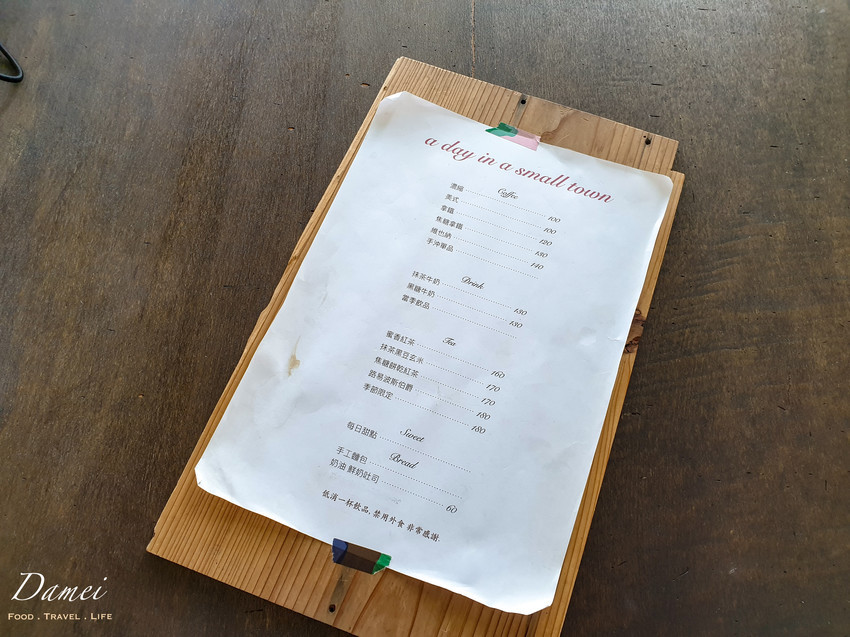 a day in a small town
Coffee
濃縮 100
美式 100
拿鐵 120
焦糖拿鐵 130
維也納 140
手沖單品
Drink
抹茶牛奶 130
黑糖牛奶 130
當季飲品
Tea
蜜香紅茶 160
抹茶黑豆玄米 170
焦糖餅乾紅茶 170
路易波斯伯爵 180
季節限定 180
Sweet
每日甜點
Bread
手工麵包
奶油 鮮奶吐司 60
低消一杯飲品, 禁用外食 非常感謝.
Damei
FOOD . TRAVEL . LIFE